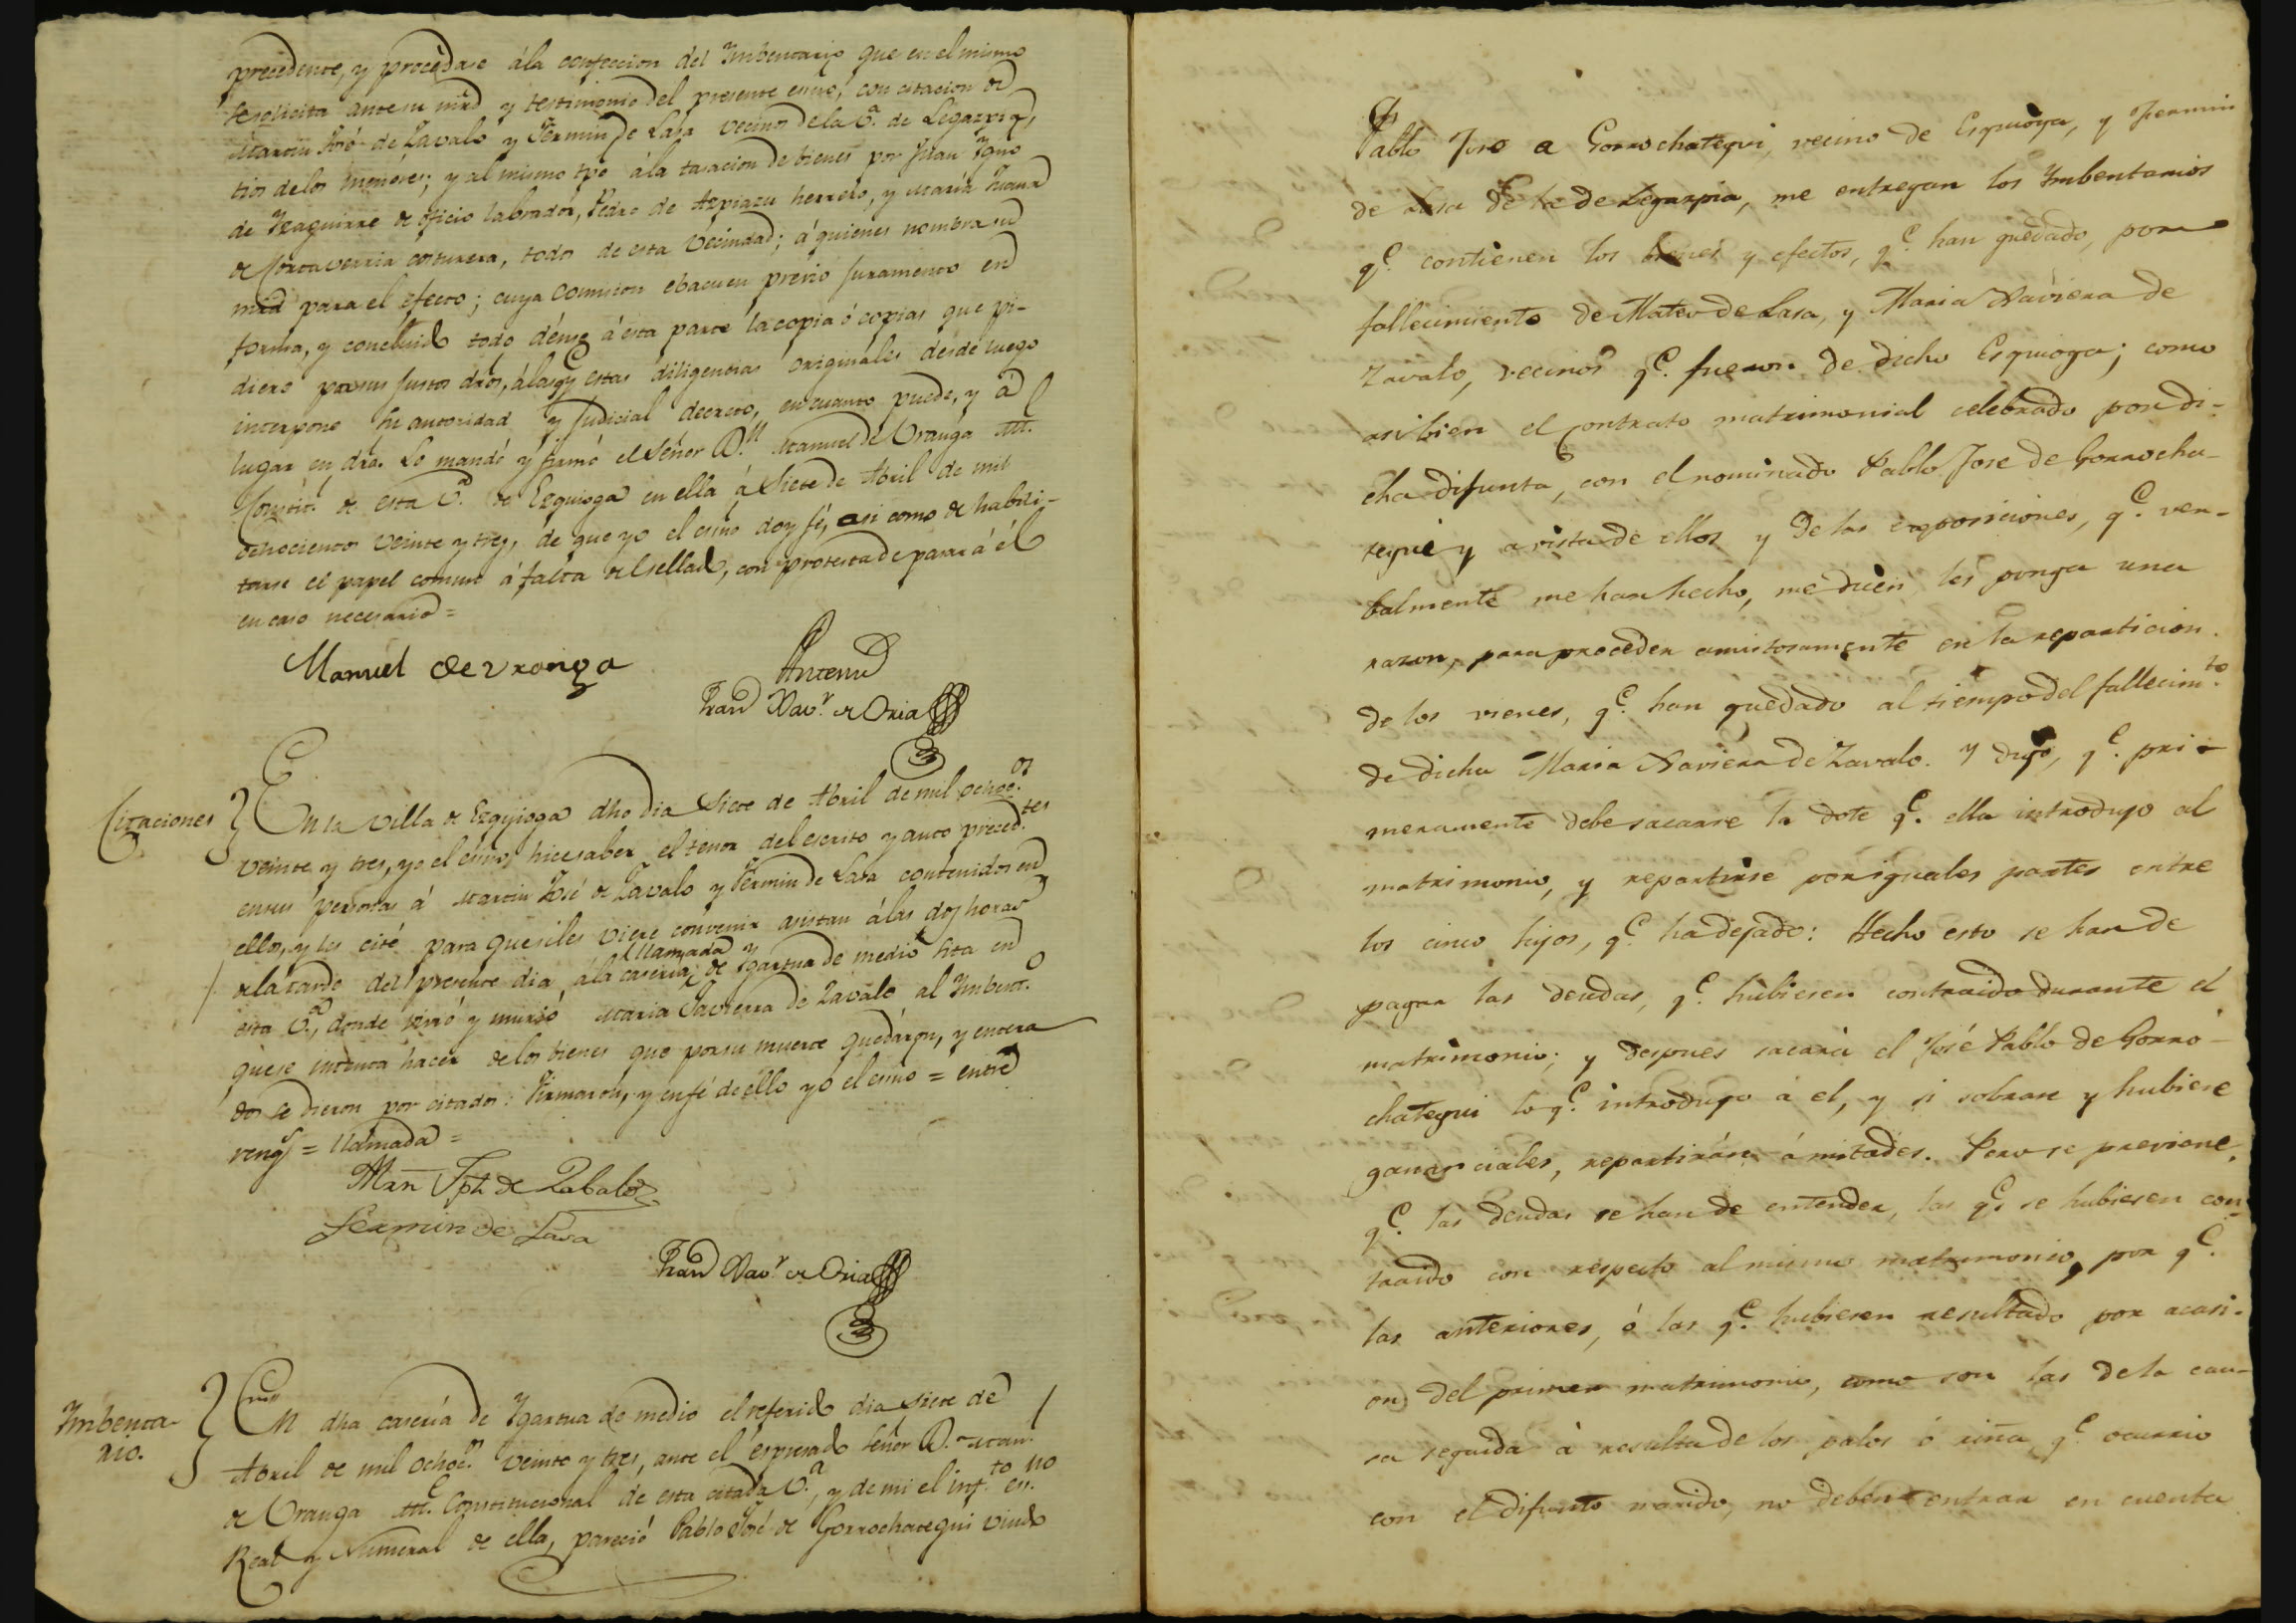 precedente, y procedase ála confeccion del Imbentario que en el mismo
se solicita ante su mrd y testimonio del presente esno, con citacion de
Martin José de Zavalo y Fermin de Lasa vecinos de la V.ª de Legazpia,
tios delos menores; y al mismo tpo ála tasacion de bienes por Juan Igno
de Izaguirre de oficio labrador, Pedro de Azpiazu herrero, y Maria Juana
de costurera, todos de esta vecindad; á quienes nombra su
mrd para el efecto; cuya comision ebacuen previo juramento en
forma, y concluido todo dénse á esta parte la copia ó copias que pi-
diere por sus justos dros, álas q.e y estas diligencias originales desde luego
interpone su autoridad y judicial decreto, en cuanto puede, y á
lugar en dro. Lo mandó y firmó el Señor D.n Manuel de Uranga Al.e
Constit.l de esta V.ª de Ezquioga en ella á siete de Abril de mil
ochocientos veinte y tres, de que yo el esno doy fé, asi como de habili-
tarse el papel comun á falta del sellado, con protesta de pasar á él
en caso necesario =
Manuel de Uranga
Antemi
Fran.co Xav.r de Oria
Citaciones } En la villa de Ezquioga dho dia siete de Abril de mil ochoc.os
veinte y tres, yo el esno hice saber el tenor del escrito y auto preced.tes
en sus personas á Martin José de Zavalo y Fermin de Lasa contenidos en
ellos, y les cité para que si les viere convenir asistan álas dos horas
llamada
dela tarde del presente dia, ála caseria de Ygartua de medio sita en
esta V.ª, donde vivió y murió Maria Javierra de Zavalo al Imbent.o
que se intenta hacer delos bienes que por su muerte quedáron, y entera
dos se dieron por citados: Firmaron, y en fé de ello yo el esno = entre
reng.s = llamada =
Mrn Jph de Zabalo
Fermin de Lasa
Fran.co Xav.r de Oria
Imbenta-
rio. } En dha caseria de Ygartua de medio el referido dia siete de
Abril de mil ochoc.s veinte y tres, ante el espresado Señor D.n Man.l
de Uranga Al.e Constitucional de esta citada V.ª, y de mi el inf.to es.no
Real y Numeral de ella, pareció Pablo José de Gorrochategui viudo
Pablo Jose a Gorrochategui, vecino de Esquioga, y Fermin
de Lasa de la de Legazpia, me entregan los Imbentarios
q.e contienen los bienes y efectos, q.e han quedado, por
fallecimiento de Mateo de Lasa, y Maria Xaviera de
Zavalo, vecinos q.e fueron de dicho Esquioga; como
asi bien el Contrato matrimonial celebrado por di-
cha difunta, con el nominado Pablo Jose de Gorrocha-
tegui y a vista de ellos y de las exposiciones, q.e ver-
balmente me han hecho, me dicen les ponga una
razon, para proceder amistosamente en la reparticion
de los vienes, q.e han quedado al tiempo del fallecim.to
de dicha Maria Xaviera de Zavalo. Y digo, q.e pri-
meramente debe sacarse la dote q.e ella introdujo al
matrimonio, y repartirse por iguales partes entre
los cinco hijos, q.e ha dejado: Hecho esto se han de
pagar las deudas, q.e hubiesen contraido durante el
matrimonio; y despues sacará el José Pablo de Gorro-
chategui lo q.e introdujo á el, y si sobrare y hubiese
gananciales, repartirán á mitades. Pero se previene,
q.e las deudas se han de entender, las q.e se hubiesen con-
traido con respecto al mismo matrimonio, por q.e
las anteriores, ó las q.e hubiesen resultado por acasi-
on del primer matrimonio, como son las de la cau-
sa seguida à resulta de los palos ó riña q.e ocurrio
con el difunto marido, no deben entrar en cuenta